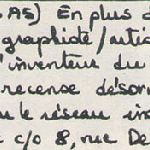 AS) En plus d
graphide/artic
l'inventeur du
recense désor
le réseau in
c/o 8, rue De